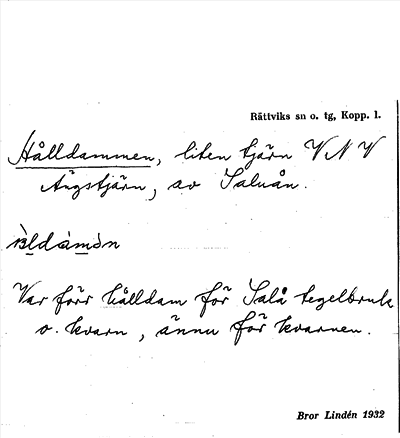 Rättviks sn o. tg, Kopp. l.
Hålldammen, liten tjärn V N V
Ängstjärn, av Saluån.
Var förr hålldam för Salå tegelbruk
o. kvarn, ännu för kvarnen.
Bror Lindén 1932